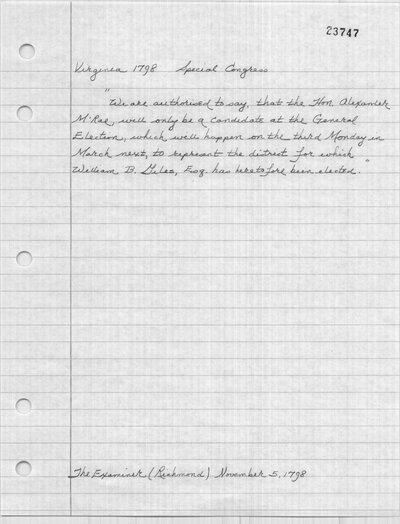 23747
Virginia 1798 Special Congress
"We are authorised to say, that the Hon. Alexander
M'Rae, will only be a candidate at the General
Election, which will happen on the third Monday in
March next, to represent the district for which
William B. Giles, Esq. has heretofore been elected."
The Examiner (Richmond) November 5, 1798